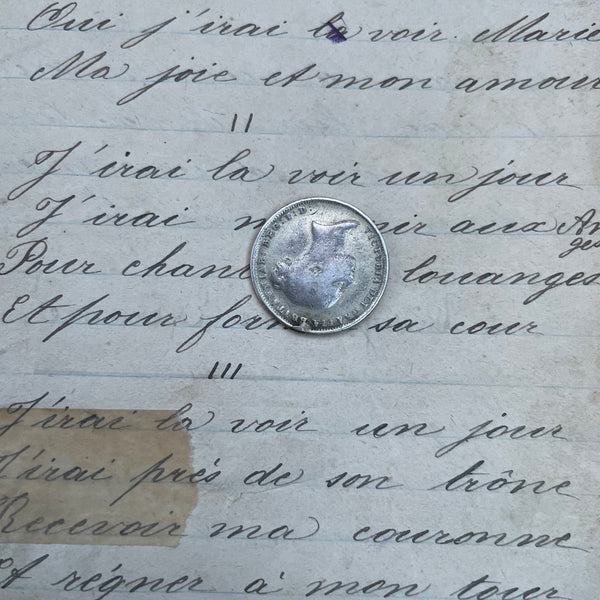 Oui j'irai la voir Marie
Ma joie et mon amour
II
J'irai la voir un jour
J'irai m nir aux An
ges
Pour chan louanges
Et pour form sa cour
III
J'irai la voir un jour
J'irai prés de son trône
Recevoir ma couronne
Et régner à mon tour
VICTORIA DEI REG F: D: